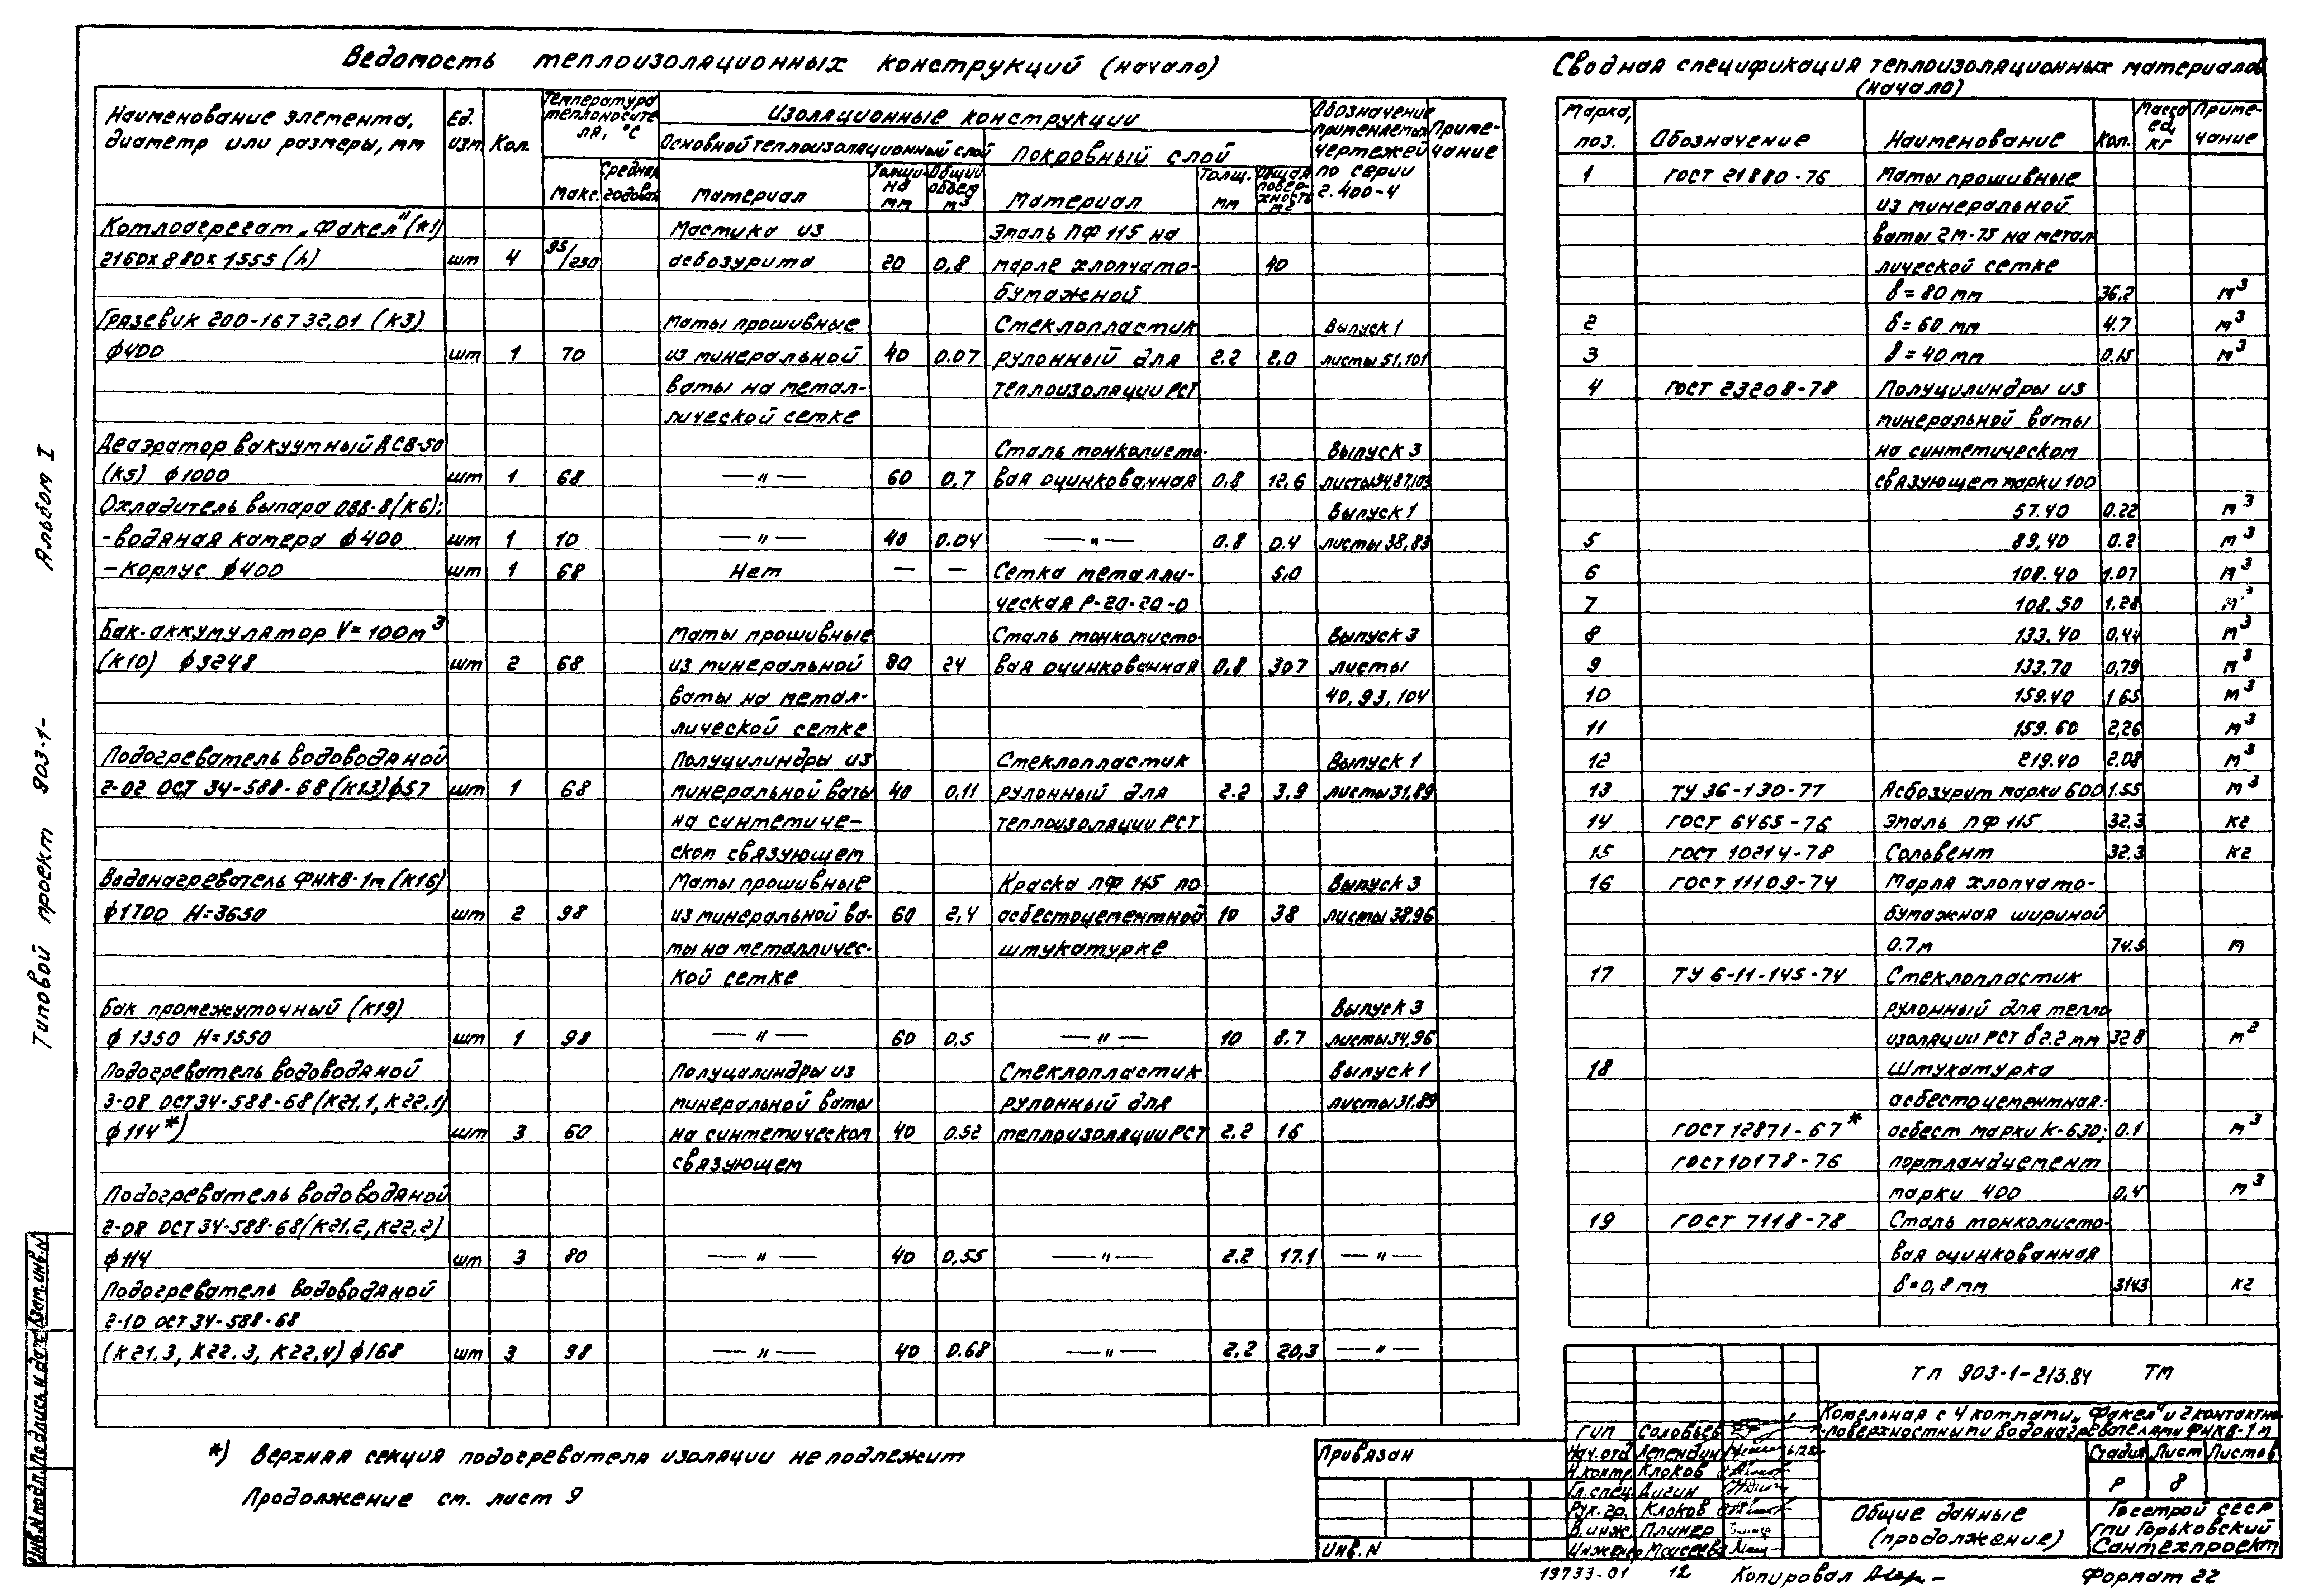 Ведомость теплоизоляционных конструкций (начало)
Наименование элемента, диаметр или размеры, мм
Ед. изм.
Кол.
Температура теплоносителя, °С
Макс.
Средняя годовая
Изоляционные конструкции
Основной теплоизоляционный слой
Покровный слой
Материал
Толщина мм
Общий объем м³
Материал
Толщ. мм
Общая поверхность м²
Обозначение применяемых чертежей по серии 2.400-4
Примечание
Котлоагрегат „Факел" (К1) Мастика из Эмаль ПФ 115 на
2160х880х1555 (h) шт 4 95/250 асбозурита 20 0,8 марле хлопчато- 40
бумажной
Грязевик 200-16Т32.01 (К3) Маты прошивные Стеклопластик Выпуск 1
ф400 шт 1 70 из минеральной 40 0.07 рулонный для 2.2 2,0 листы 51,101
ваты на метал- теплоизоляции РСТ
лической сетке
Деаэратор вакуумный ДСВ-50 Сталь тонколисто- Выпуск 3
(К5) ф1000 шт 1 68 —"— 60 0,7 вая оцинкованная 0.8 12.6 листы 34,87,103
Охладитель выпара ОВВ-8 (К6): Выпуск 1
- водяная камера ф400 шт 1 10 —"— 40 0.04 —"— 0.8 0.4 листы 38,83
- корпус ф400 шт 1 68 Нет — — Сетка металли- 5,0
ческая Р-20-20-0
Бак-аккумулятор V=100м³ Маты прошивные Сталь тонколисто- Выпуск 3
(К10) ф3248 шт 2 68 из минеральной 80 24 вая оцинкованная 0,8 307 листы
ваты на метал- 40,93,104
лической сетке
Подогреватель водоводяной Полуцилиндры из Стеклопластик Выпуск 1
2-02 ОСТ 34-588-68 (К13) ф57 шт 1 68 минеральной ваты 40 0,11 рулонный для 2.2 3,9 листы 31,89
на синтетиче- теплоизоляции РСТ
ском связующем
Водонагреватель ФНКВ-1м (К16) Маты прошивные Краска ПФ 115 по Выпуск 3
ф1700 Н=3650 шт 2 98 из минеральной ва- 60 2,4 асбестоцементной 10 38 листы 38,96
ты на металличес- штукатурке
кой сетке
Бак промежуточный (К19) Выпуск 3
ф 1350 Н=1550 шт 1 98 —"— 60 0.5 —"— 10 8,7 листы 34,96
Подогреватель водоводяной Полуцилиндры из Стеклопластик Выпуск 1
3-08 ОСТ 34-588-68 (К21.1, К22.1) минеральной ваты рулонный для листы 31,89
ф114*) шт 3 60 на синтетическом 40 0.52 теплоизоляции РСТ 2.2 16
связующем
Подогреватель водоводяной
2-08 ОСТ 34-588-68 (К21.2, К22.2)
ф114 шт 3 80 —"— 40 0,55 —"— 2.2 17.1 —"—
Подогреватель водоводяной
2-10 ОСТ 34-588-68
(К21.3, К22.3, К22.4) ф168 шт 3 98 —"— 40 0.68 —"— 2,2 20,3 —"—
*) Верхняя секция подогревателя изоляции не подлежит
Продолжение см. лист 9
Сводная спецификация теплоизоляционных материалов
(начало)
Марка, поз.
Обозначение
Наименование
Кол.
Масса ед, кг
Примечание
1 ГОСТ 21880-76 Маты прошивные
из минеральной
ваты 2М-75 на метал
лической сетке
δ=80 мм 36,2 м³
2 δ=60 мм 4.7 м³
3 δ=40 мм 0.15 м³
4 ГОСТ 23208-78 Полуцилиндры из
минеральной ваты
на синтетическом
связующем марки 100
57.40 0.22 м³
5 89,40 0.2 м³
6 108.40 1.07 м³
7 108.50 1,28 м³
8 133.40 0,44 м³
9 133.70 0,79 м³
10 159.40 1.65 м³
11 159.60 2,26 м³
12 219.40 2.08 м³
13 ТУ 36-130-77 Асбозурит марки 600 1.55 м³
14 ГОСТ 6465-76 Эмаль ПФ 115 32.3 кг
15 ГОСТ 10214-78 Сольвент 32.3 кг
16 ГОСТ 11109-74 Марля хлопчато-
бумажная шириной
0.7м 74.5 м
17 ТУ 6-11-145-74 Стеклопластик
рулонный для тепло
изоляции РСТ δ2.2 мм 328 м²
18 Штукатурка
асбестоцементная:
ГОСТ 12871-67* асбест марки К-630; 0.1 м³
ГОСТ 10178-76 портландцемент
марки 400 0,4 м³
19 ГОСТ 7118-78 Сталь тонколисто-
вая оцинкованная
δ=0,8 мм 3143 кг
ТП 903-1-213.84 ТМ
Котельная с 4 котлами „Факел" и 2 контактно-
поверхностными водонагревателями ФНКВ-1м
ГИП Соловьев
Нач.отд Лепендин
Н.контр. Клоков
Гл.спец. Дигин
Рук.гр. Клоков
В.инж. Плинер
Инженер Моисеева
Стадия Лист Листов
Р 8
Общие данные
(продолжение)
Госстрой СССР
ГПИ Горьковский
Сантехпроект
Привязан
Инв.N
19733-01 12 Копировал Формат 22
Альбом I
Типовой проект 903-1-
Взам.инв.N
Подпись и дата
Инв.N подл.